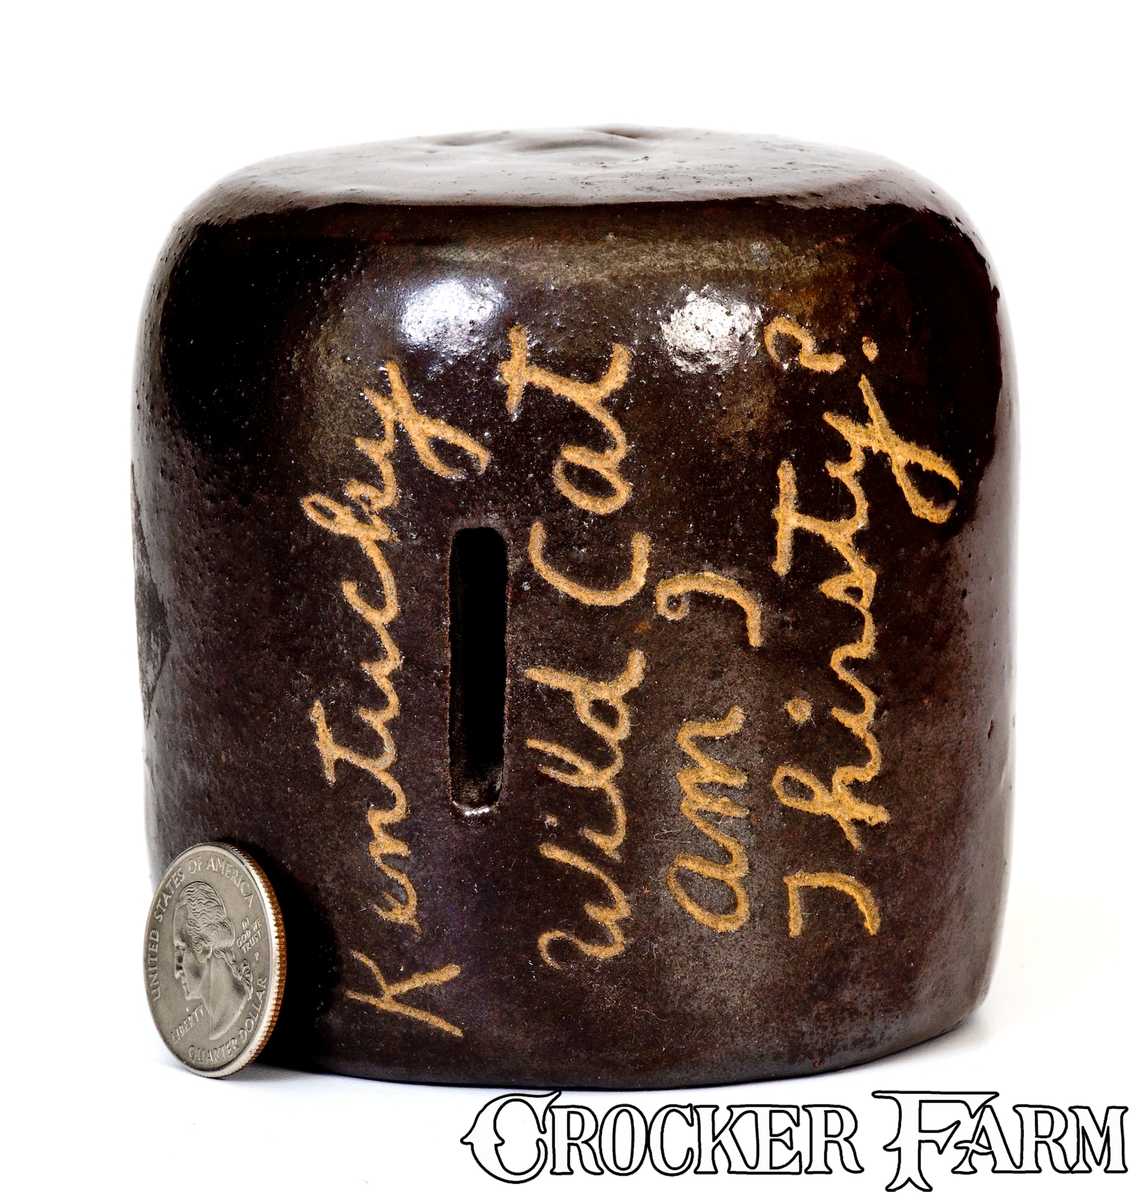 Kentucky
Wild Cat
am I
Thirsty?
UNITED STATES OF AMERICA
LIBERTY
IN
GOD WE
TRUST
QUARTER DOLLAR
CROCKER FARM